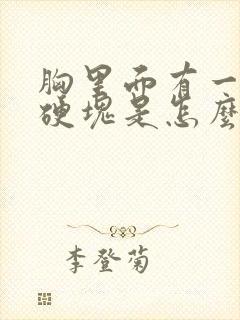 胸里面有一
硬塊是怎麼
李登菊